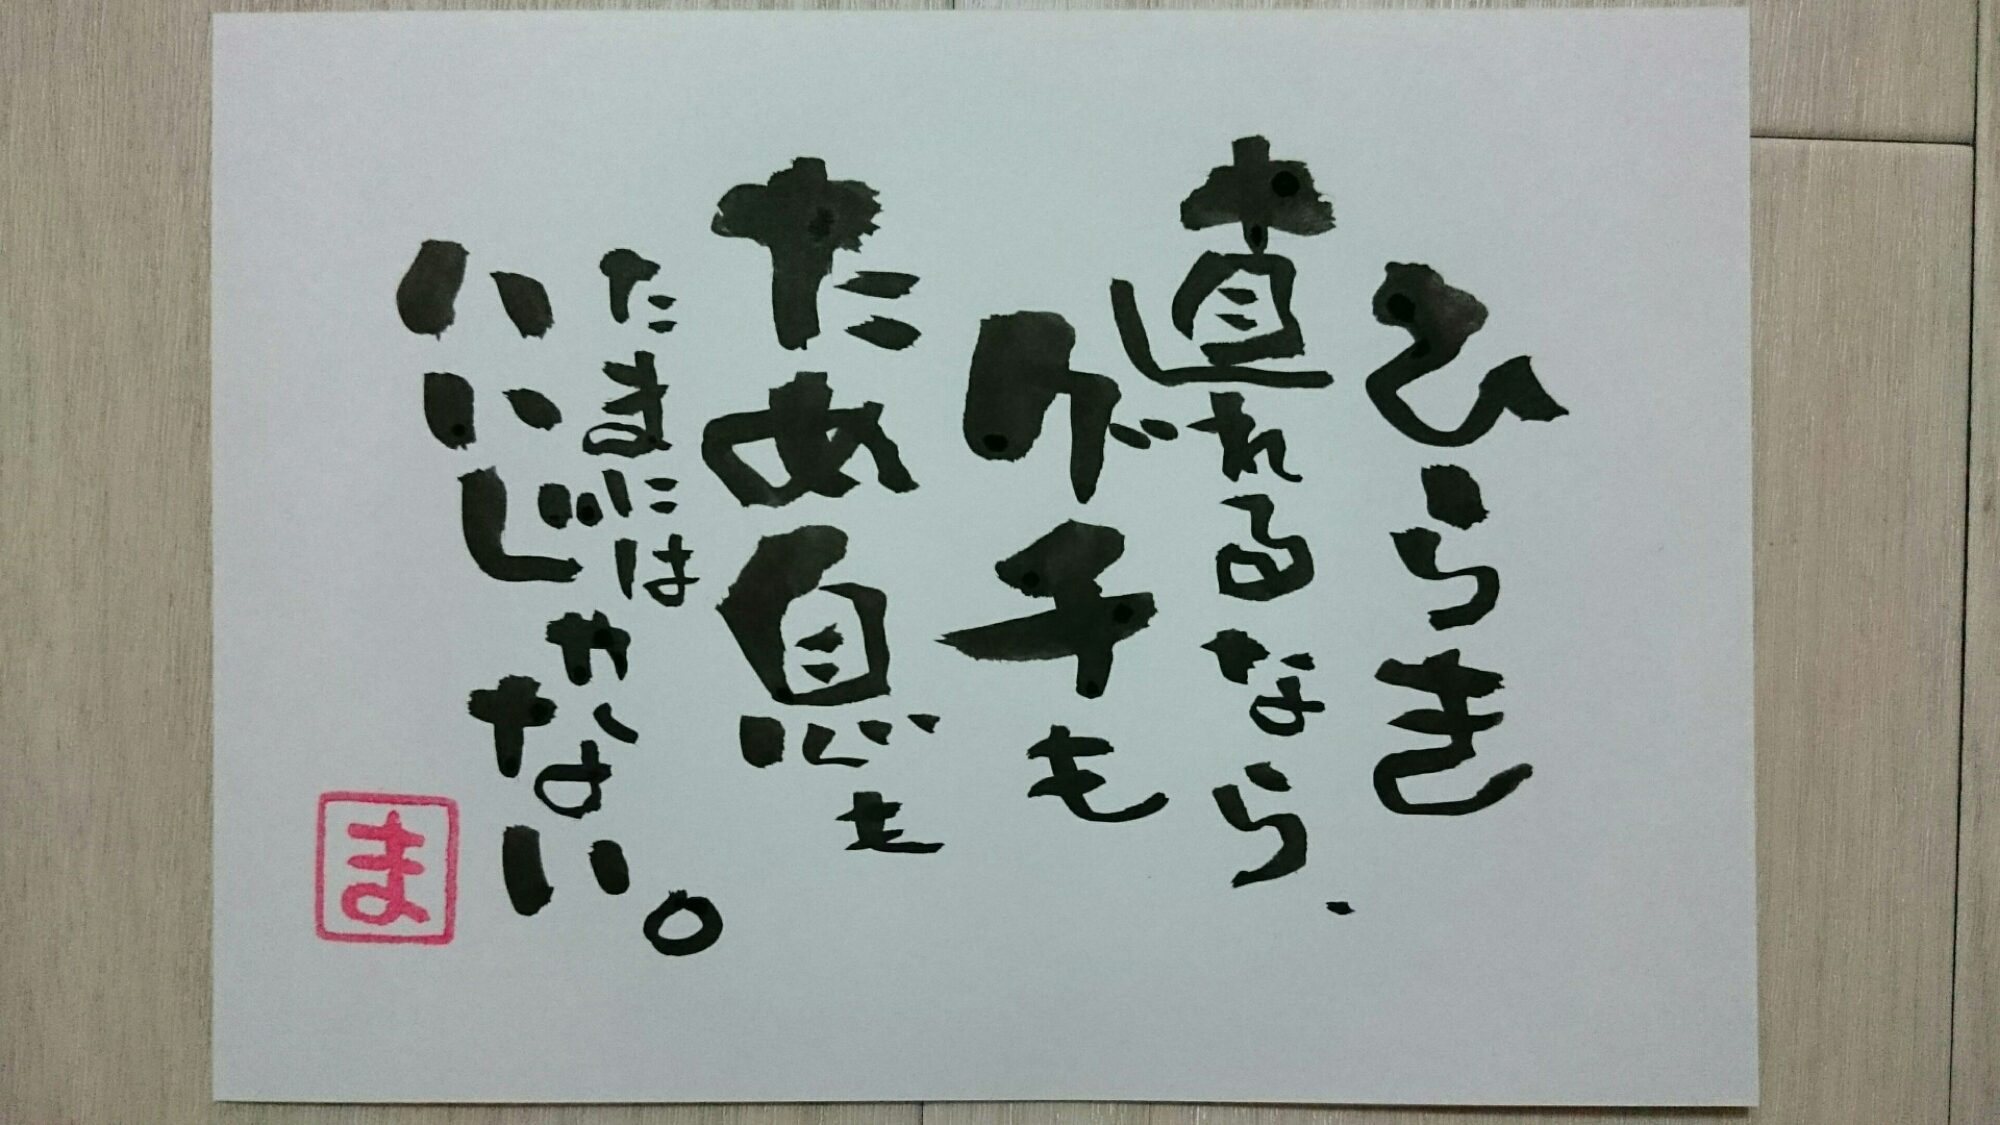 ひらき
直れるなら、
グチも
ため息も
たまには
いいじゃない。
ま